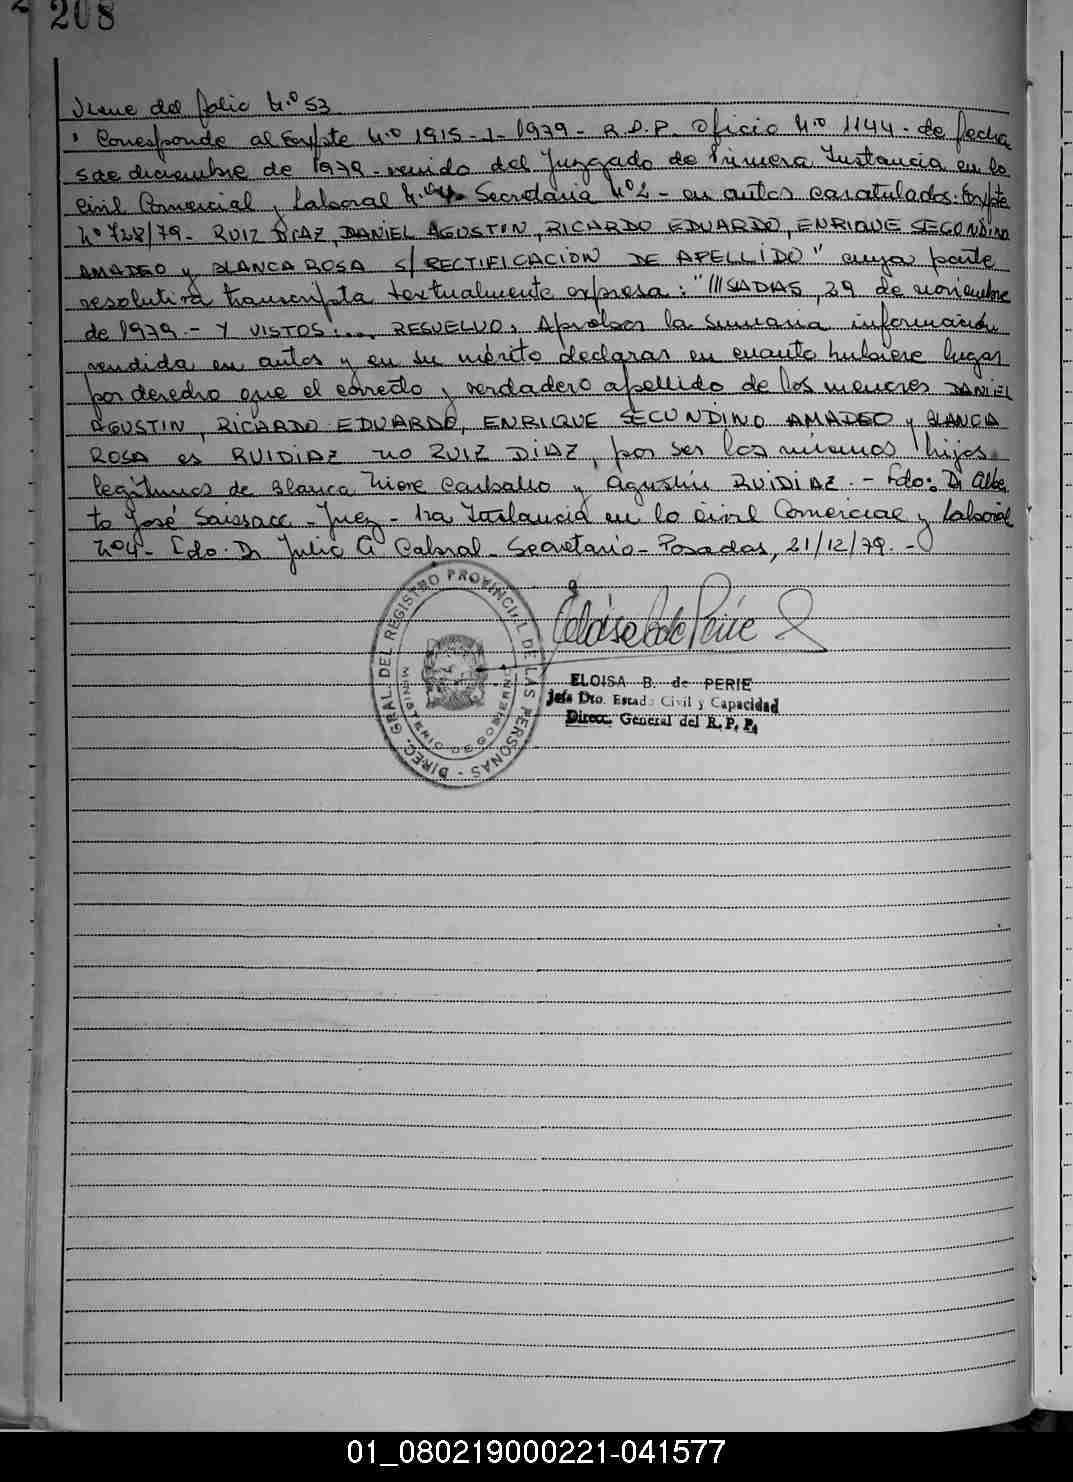 208
Viene del folio N.º 53
" Corresponde al Expte N.º 1915-I-1979- R.P.P. Oficio N.º 1144- de fecha
5 de diciembre de 1979- venido del Juzgado de Primera Instancia en lo
Civil Comercial y Laboral N.º 4- Secretaría Nº 2- en autos caratulados: Expte
Nº 728/79- RUIZ DIAZ, DANIEL AGUSTIN, RICARDO EDUARDO, ENRIQUE SECUNDINO
AMADEO y BLANCA ROSA S/ RECTIFICACION DE APELLIDO" cuya parte
resolutiva transcripta textualmente expresa: "///SADAS, 29 de noviembre
de 1979.- Y VISTOS:... RESUELVO: Aprobar la sumaria información
rendida en autos y en su mérito declarar en cuanto hubiere lugar
por derecho que el correcto y verdadero apellido de los menores DANIEL
AGUSTIN, RICARDO EDUARDO, ENRIQUE SECUNDINO AMADEO y BLANCA
ROSA es RUIDIAZ no RUIZ DIAZ, por ser los mismos hijos
legítimos de Blanca Carballo y Agustín RUIDIAZ.- Fdo: Dr Alber
to José - Juez- 1ra Instancia en lo Civil Comercial y Laboral
Nº4- Fdo. Dr Julio C Cabral- Secretario- Posadas, 21/12/79.-
DIREC. GRAL. DEL REGISTRO PROVINCIAL DE LAS PERSONAS -
MINISTERIO DE GOBIERNO
Eloisa B de Perie
ELOISA B. de PERIE
Jefa Dto. Estado Civil y Capacidad
Direcc. General del R. P. P.
01_080219000221-041577